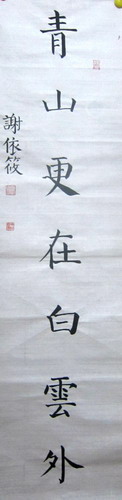 青山更在白雲外
謝依筱